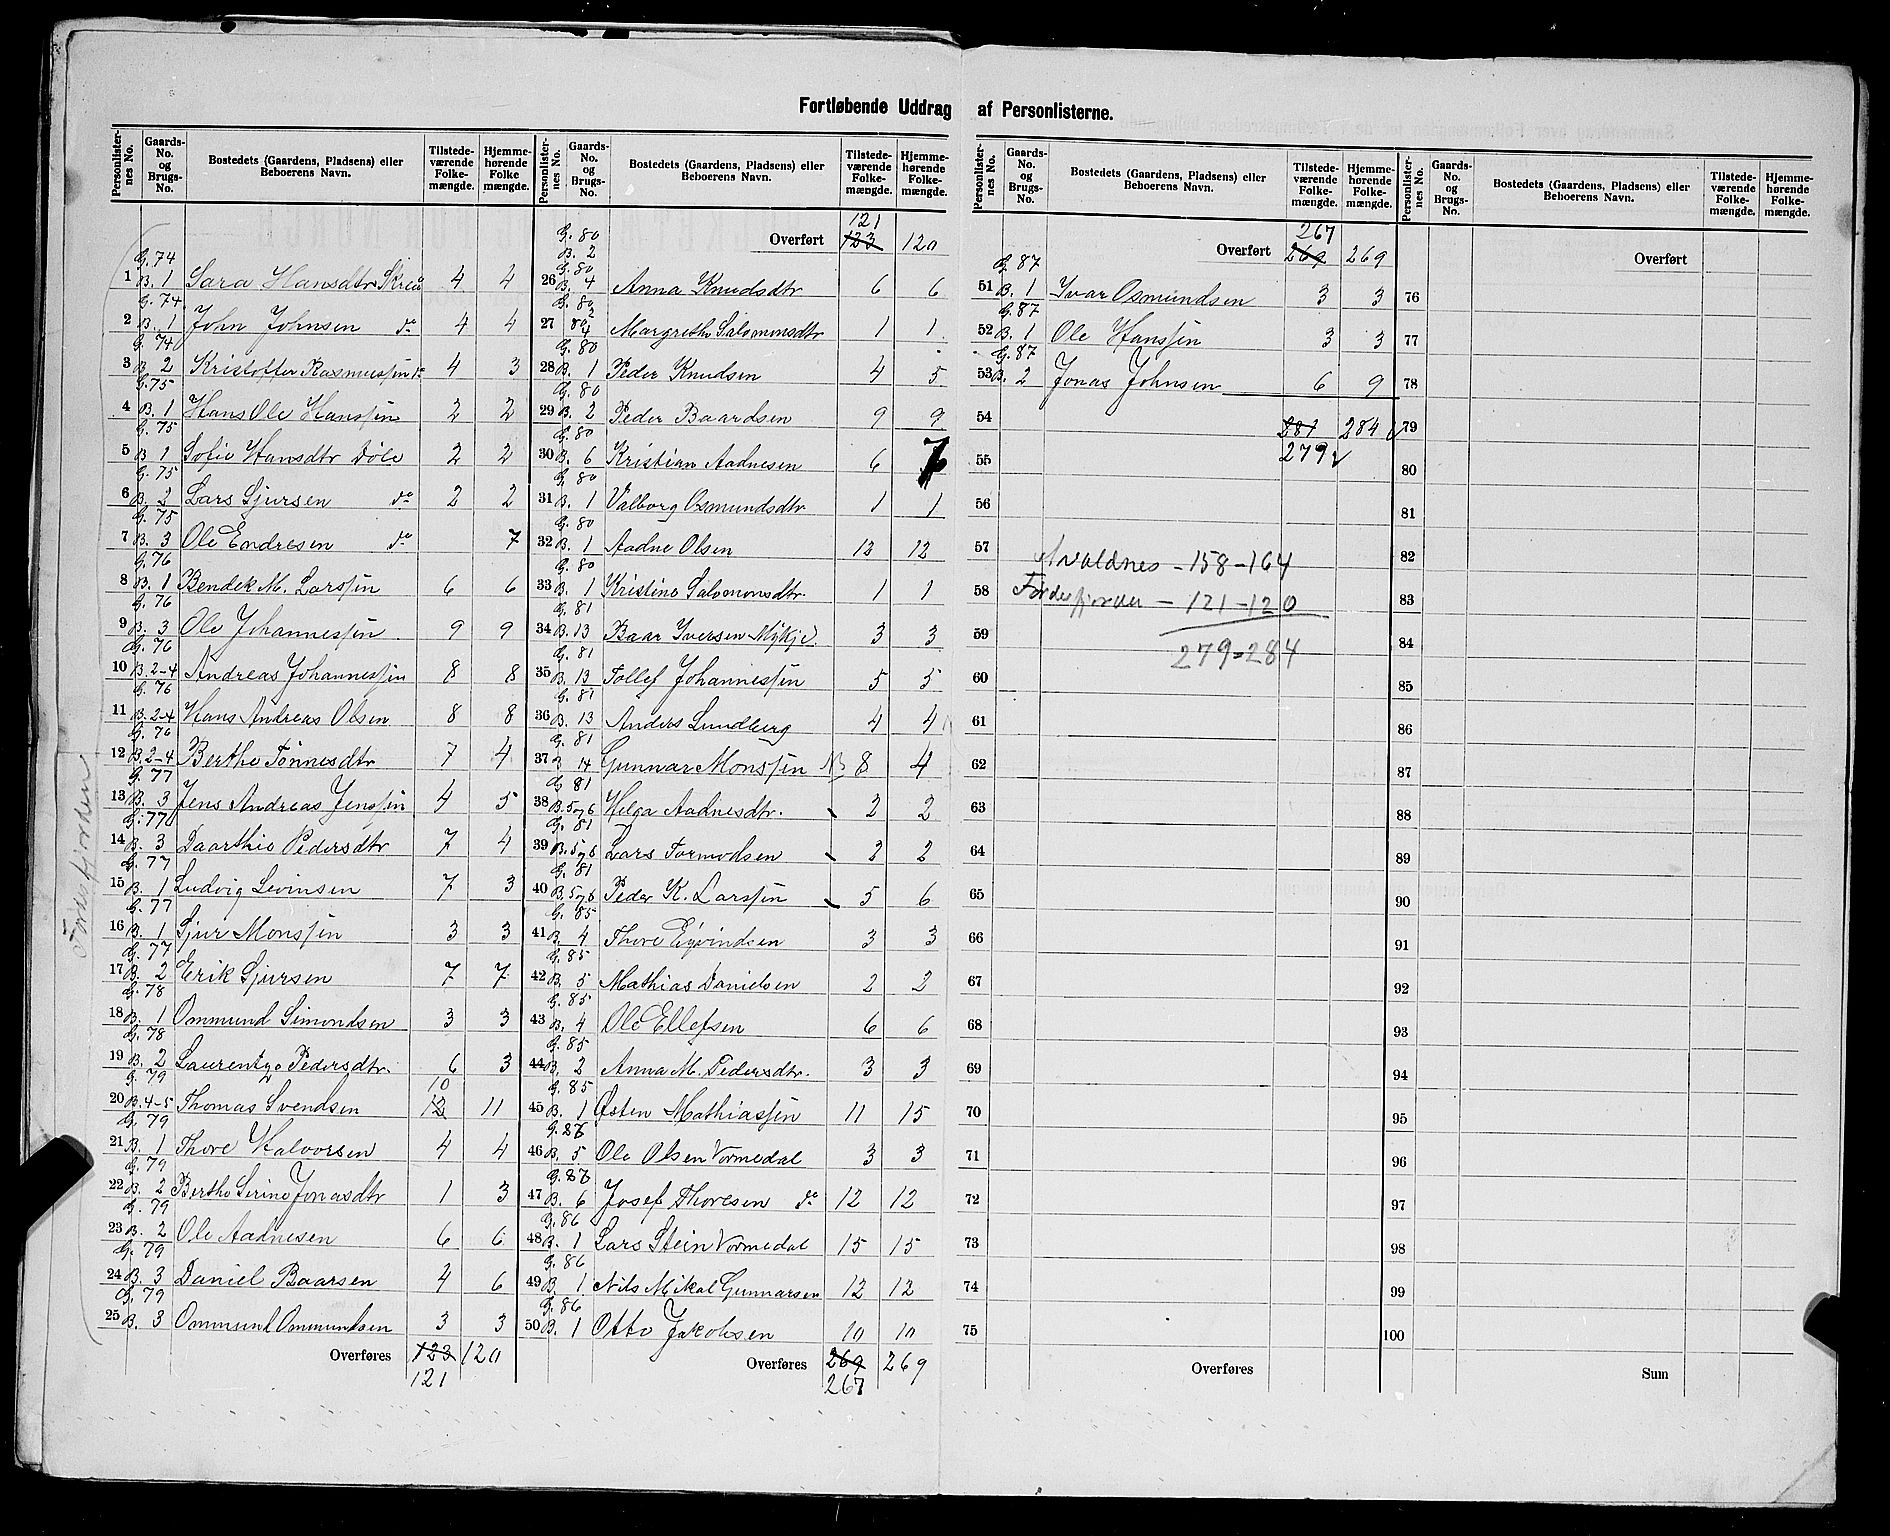 Fortløbende Uddrag af Personlisterne.
Personlister-nes No. | Gaards-No. og Brugs-No. | Bostedets (Gaardens, Pladsens) eller Beboerens Navn. | Tilstede-værende Folke-mængde. | Hjemme-hørende Folke mængde.
1 G. 74 B. 1 Sara Hansdtr Skree 4 4
2 G. 74 B. 1 John Johnsen do 4 4
3 G. 74 B. 2 Kristoffer Rasmussen do 4 3
4 G. 75 B. 1 Hans Ole Hanssen 2 2
5 G. 75 B 1 Sofie Hansdtr Döle 2 2
6 G. 75 B. 2 Lars Sjursen do 2 2
7 G. 75 B. 3 Ole Endresen do 7
8 G. 76 B. 1 Bendek M. Larssen 6 6
9 G. 76 B. 3 Ole Johannessen 9 9
10 G. 76 B. 2-4 Andreas Johannessen 8 8
11 G. 76 B. 2-4 Hans Andreas Olsen 8 8
12 G. 76 B. 2-4 Berthe Tönnesdtr 7 4
13 G. 77 B. 3 Jens Andreas Jenssen 4 5
14 G. 77 B. 3 Daarthie Pedersdtr 7 4
15 G. 77 B. 1 Ludvig Levinsen 7 3
16 G. 77 B. 1 Sjur Monssen 3 3
17 G. 77 B. 2 Erik Sjursen 7 7
18 G. 78 B. 1 Ommund Simondsen 3 3
19 G. 78 B. 2 Pedersdtr. 6 3
20 G. 79 B. 4-5 Thomas Svendsen 12 10 11
21 G. 79 B. 1 Thore Halvorsen 4 4
22 G. 79 B. 2 Berthe Serine Jonasdtr 1 3
23 G. 79 B. 2 Ole Aadnesen 6 6
24 G. 79 B. 3 Daniel Baarsen 4 6
25 G. 79 B. 3 Ommund Ommundsen 3 3
Overføres 123 120
121
Førdesfjorden
Personlister-nes No. | Gaards-No. og Brugs-No. | Bostedets (Gaardens, Pladsens) eller Beboerens Navn. | Tilstede-værende Folke-mængde. | Hjemme-hørende Folke-mængde.
121
Overført 123 120
G. 80 B. 2
26 G. 80 B. 4 Anna Knudsdtr 6 6
27 G. 80 Margrethe Salomonsdtr 1 1
28 G. 80 B. 1 Peder Knudsen 4 5
29 G. 80 B. 2 Peder Baardsen 9 9
30 G. 80 B. 6 Kristian Aadnesen 6 7
31 G. 80 B. 1 Valborg Osmundsdtr 1 1
32 G. 80 B. 1 Aadne Olsen 12 12
33 G. 80 B. 1 Kristine Salomonsdtr. 1 1
34 G. 81 B. 13 Baar Iversen Mykje. 3 3
35 G. 81 B. 13 Tollef Johannessen 5 5
36 G. 81 B. 13 Anders Lundberg 4 4
37 G. 81 B 14 Gunnar Monssen NB 8 4
38 G 81 B. 5 og 6 Helga Aadnesdtr. 2 2
39 G. 81 B. 5 og 6 Lars Tormodsen 2 2
40 G. 81 B. 5 og 6 Peder K. Larssen 5 6
41 G. 85 B. 4 Thore Eyvindsen 3 3
42 G. 85 B. 5 Mathias Danielsen 2 2
43 G. 85 B. 4 Ole Ellefsen 6 6
44 G. 85 B. 2 Anna M. Pedersdtr. 3 3
45 G. 85 B. 1 Østen Mathiassen 11 15
46 G. 86 B. 5 Ole Olsen Vormedal 3 3
47 G. 86 B. 6 Josef Thoresen do 12 12
48 G. 86 B. 1 Lars Stein Vormedal 15 15
49 G. 86 B. 1 Nils Mikal Gunnarsen 12 12
50 G. 86 B. 1 Otto Jakobsen 10 10
Overføres 269 269
267
Personlister-nes No. | Gaards-No. og Brugs-No. | Bostedets (Gaardens, Pladsens) eller Beboerens Navn. | Tilstede-værende Folke-mængde. | Hjemme-hørende Folke-mængde.
267
Overført 269 269
51 G. 87 B. 1 Ivar Osmundsen 3 3
52 G. 87 B. 1 Ole Hanssen 3 3
53 G. 87 B. 2 Jonas Johnsen 6 9
54 281 284
55 279
56
57
Avaldnes - 158 - 164
58 Førdesfjorden - 121 - 120
59
279 = 284
60
61
62
63
64
65
66
67
68
69
70
71
72
73
74
75
Overføres
Personlister-nes No. | Gaards-No. og Brugs-No. | Bostedets (Gaardens, Pladsens) eller Beboerens Navn. | Tilstede-værende Folke-mængde. | Hjemme-hørende Folke-mængde.
Overført
76
77
78
79
80
81
82
83
84
85
86
87
88
89
90
91
92
93
94
95
96
97
98
99
100
Sum